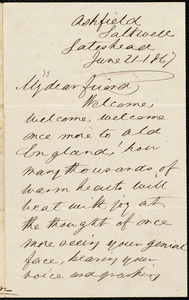 Ashfield
Saltwell
Gateshead
June 21 1867
My dear friend,
Welcome,
welcome, welcome
once more to old
England! how
many thousands of
warm hearts will
beat with joy at
the thought of once
more seeing your genial
face, hearing your
voice and grasping